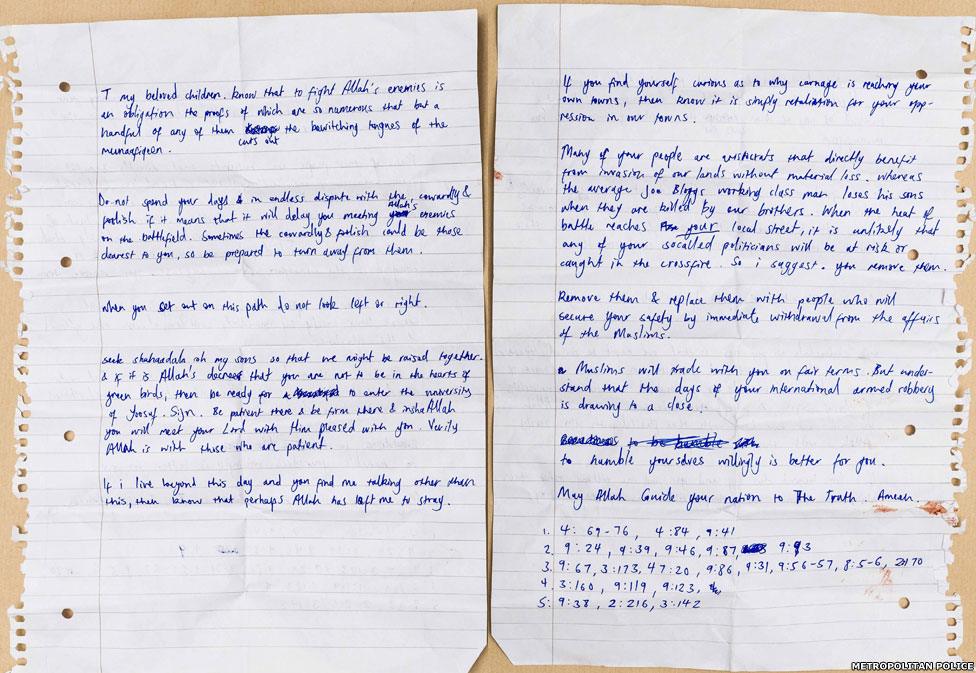 T my beloved children. Know that to fight Allah's enemies is
an obligation the proofs of which are so numerous that but a
handful of any of them cuts out the bewitching tongues of the
munaafiqeen.
Do not spend your days in endless dispute with the cowardly &
foolish if it means that it will delay you meeting Allah's enemies
on the battlefield. Sometimes the cowardly & foolish could be those
dearest to you, so be prepared to turn away from them.
When you set out on this path do not look left or right.
Seek shahaadala oh my sons so that we might be raised together.
& if it is Allah's decree that you are not to be in the hearts of
green birds, then be ready for to enter the university
of Yoosuf. Sijn. Be patient there & be firm there & inshaAllah
you will meet your Lord with Him pleased with you. Verily
Allah is with those who are patient.
If i live beyond this day and you find me talking other than
this, then know that perhaps Allah has left me to stray.
If you find yourself curious as to why carnage is reaching your
own towns, then know it is simply retaliation for your opp-
ression in our towns.
Many of your people are aristocrats that directly benefit
from invasion of our lands without material loss. whereas
the average Joe Bloggs working class man loses his sons
when they are killed by our brothers. When the heat of
battle reaches your local street, it is unlikely that
any of your socalled politicians will be at risk or
caught in the crossfire. So i suggest. you remove them.
Remove them & replace them with people who will
secure your safety by immediate withdrawal from the affairs
of the Muslims.
Muslims will trade with you on fair terms. But under-
stand that the days of your international armed robbery
is drawing to a close.
to be humble
to humble yourselves willingly is better for you.
May Allah Guide your nation to The Truth. Ameen.
1. 4: 69-76, 4:84, 9:41
2. 9:24, 9:39, 9:46, 9:87, 9:93
3. 9:67, 3:173, 47:20, 9:86, 9:31, 9:56-57, 8:5-6,
4. 3:160, 9:119, 9:123,
5. 9:38, 2:216, 3:142
METROPOLITAN POLICE